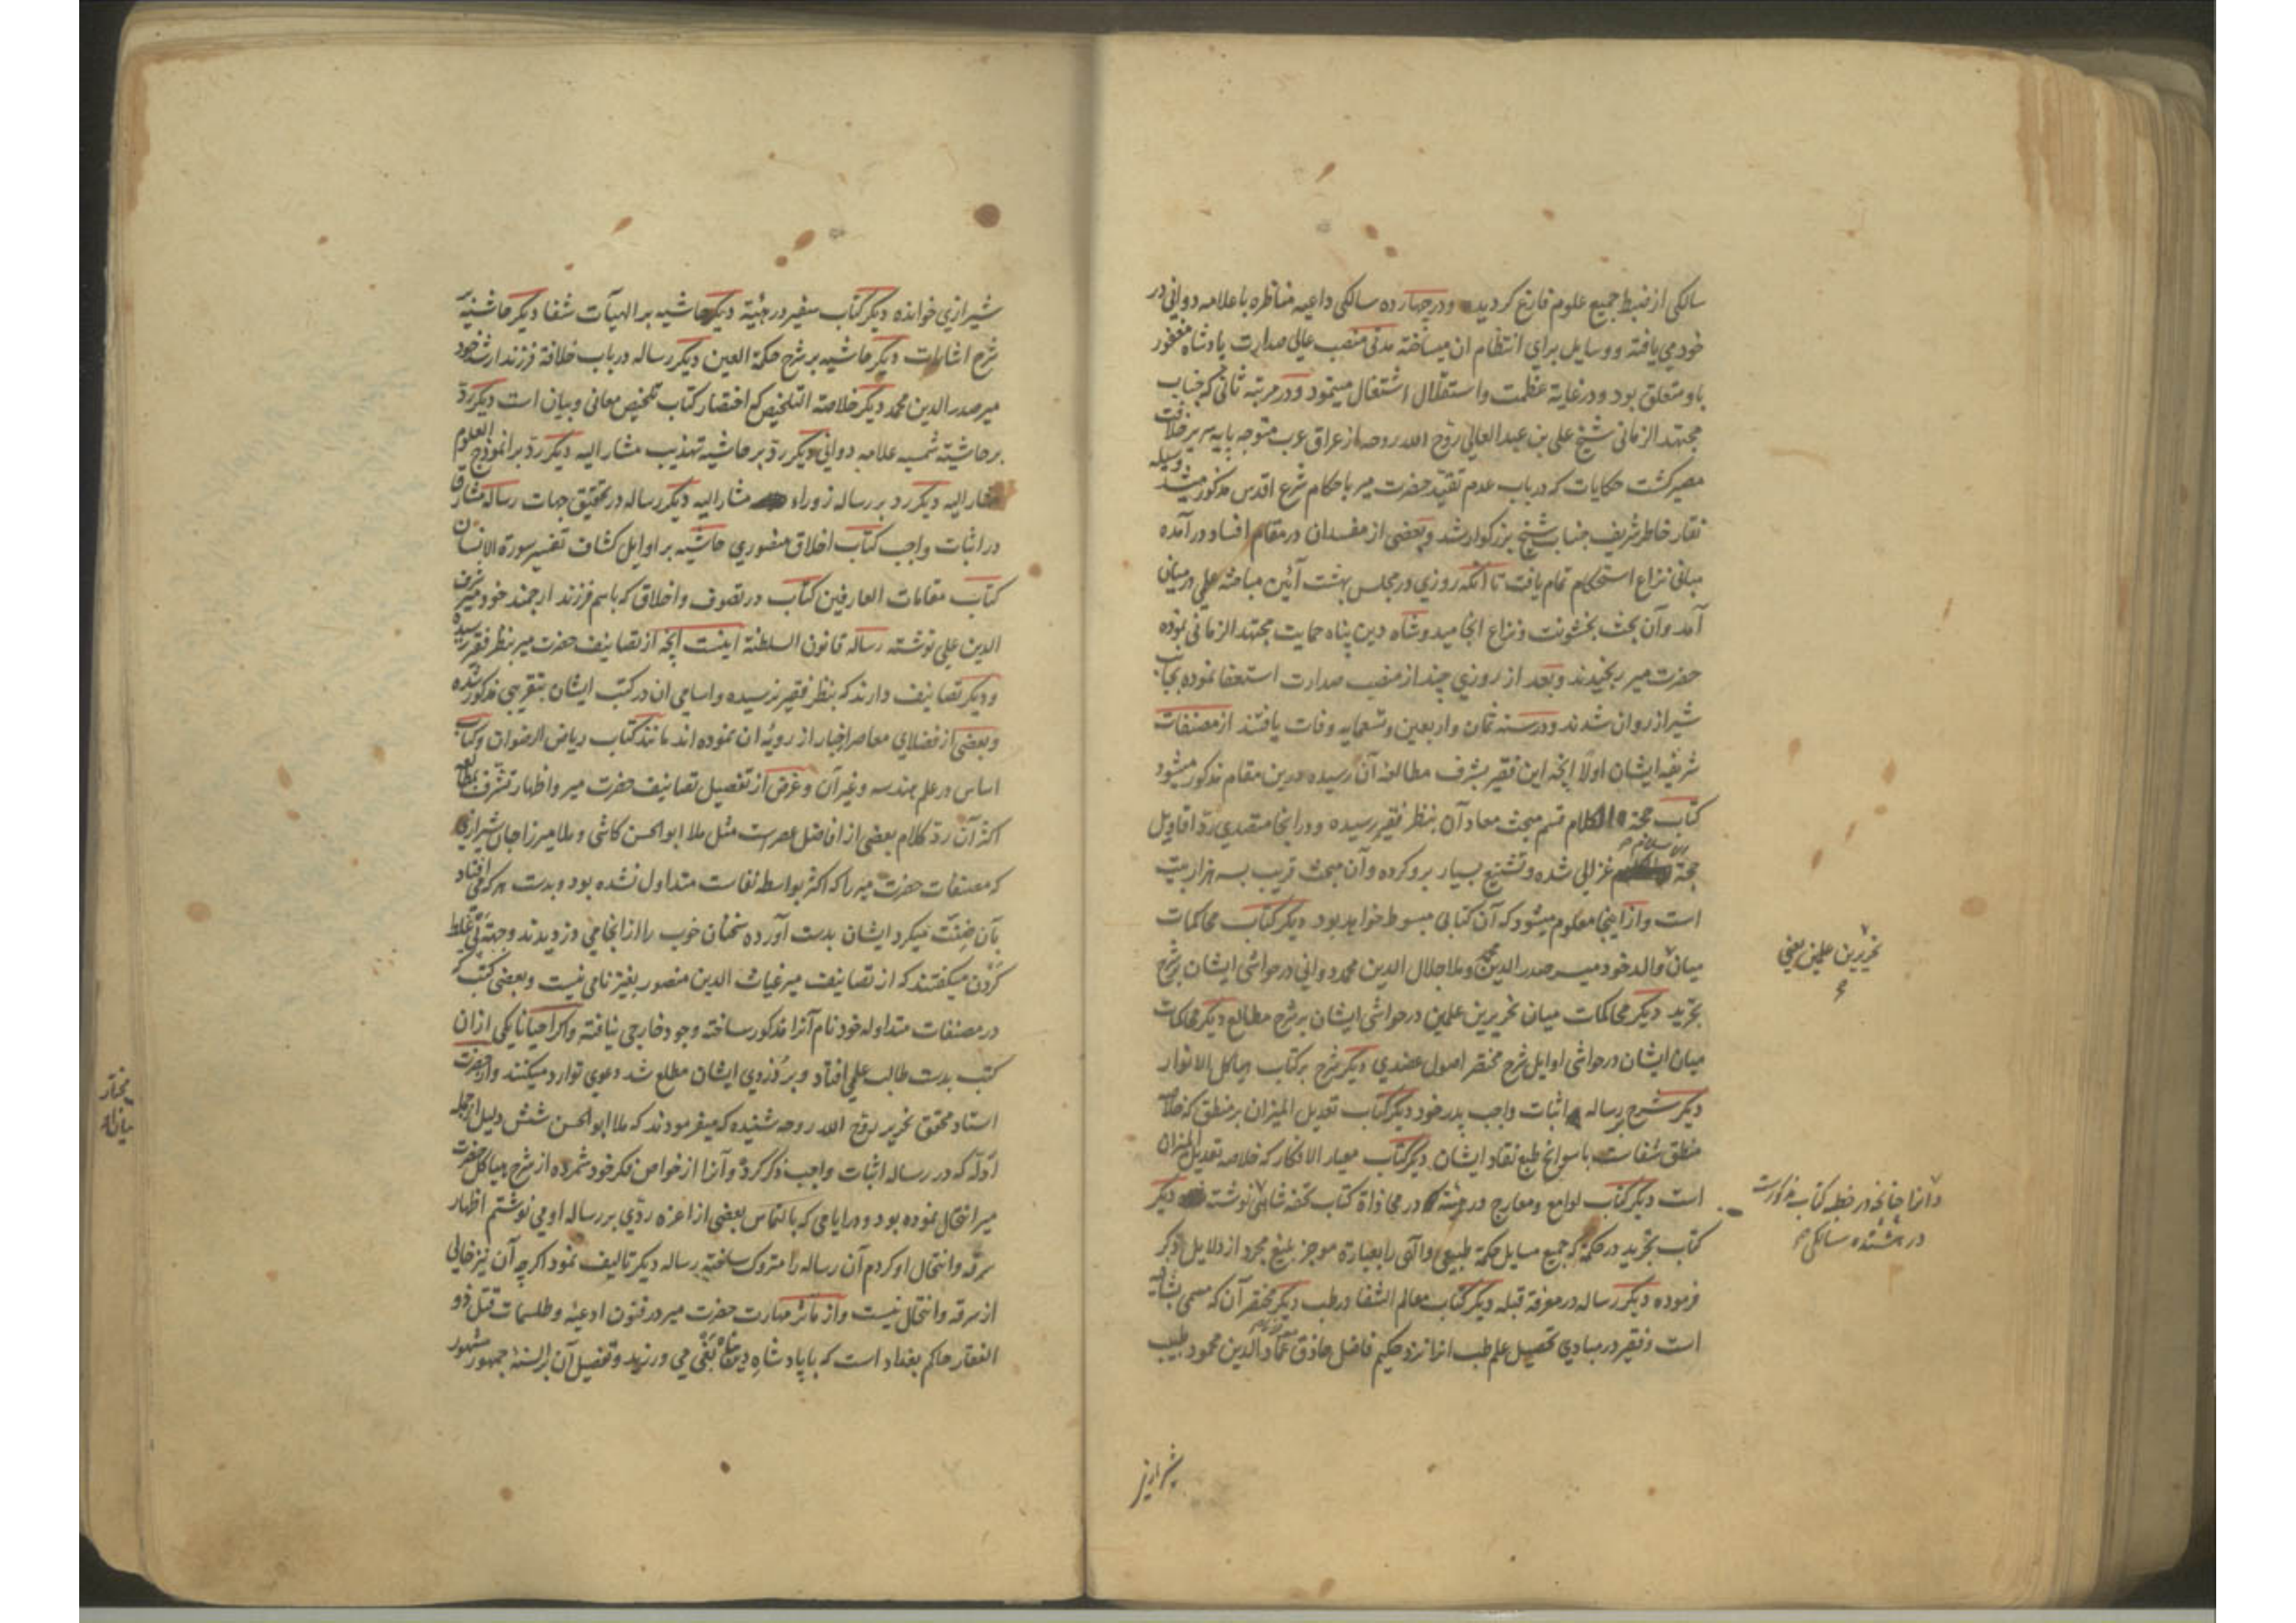 سالکی از ضبط جمیع علوم فارغ کردید و در چهارده سالکی داعیه مناظره با علامه دوانی در
خود می یافته و وسایل برای انتظام ان میساخته مدتی منصب عالی صدارت پادشاه مغفور
باو متعلق بود و در غایة عظمت و استقلال اشتغال مینمود و در مرتبه ثانی که جناب
مجتهد الزمانی شیخ علی بن عبد العالی روح الله روحه از عراق عرب متوجه پایه سریر خلافت
مصیر کشت حکایات که در باب عدم تقید حضرت میر باحکام شرع اقدس مذکور میشد وسیله
نقار خاطر شریف جناب شیخ بزرکوار شد و بعضی از مفسدان در مقام افساد در آمده
مبانی نزاع استحکام تمام یافت تا آنکه روزی در مجلس بهشت آئین مباحثه علمی در میان
آمد و آن بحث بخشونت و نزاع انجامید و شاه دین پناه حمایت مجتهد الزمانی نموده
حضرت میر برنجیدند و بعد از روزی چند از منصب صدارت استعفا نموده بجانب
شیراز روان شدند و در سنه ثمان و اربعین و تسعمایه وفات یافتند از مصنفات
شریفه ایشان اولا انچه این فقیر بشرف مطالعه آن رسیده درین مقام مذکور میشود
کتاب حجة الکلام قسم مبحث معاد آن بنظر فقیر رسیده و در انجا متصدی رد اقاویل
حجة الاسلام غزالی شده و تشنیع بسیار برو کرده و آن مبحث قریب بسه هزار بیت
است و از اینجا معلوم میشود که آن کتابی مبسوط خواهد بود دیکر کتاب محاکمات
میان والد خود میر صدر الدین محمد و ملا جلال الدین محمد دوانی در حواشی ایشان بر شرح
تجرید دیکر محاکمات میان نحریرین علمین در حواشی ایشان بر شرح مطالع دیکر محاکمات
میان ایشان در حواشی اوایل شرح مختصر اصول عضدی دیکر شرح بر کتاب هیاکل الانوار
دیکر شرح بر رساله اثبات واجب پدر خود دیکر کتاب تعدیل المیزان بر منطق که خلاصه
منطق شفاست با سوانح طبع نقاد ایشان دیکر کتاب معیار الافکار که خلاصه تعدیل المیزان
است دیکر کتاب لوامع و معارج در هیئة که در محاذاة کتاب تحفه شاهی نوشته دیکر
کتاب تجرید در حکمة که جمیع مسایل حکمة طبیعی و الهی را بعبارة موجز بلیغ مجرد از دلایل ذکر
فرموده دیکر رساله در معرفة قبله دیکر کتاب معالم الشفا در طب دیکر مختصر آن که مسمی بشافیه
است و فقیر در مبادی تحصیل علم طب انرا نزد حکیم فاضل حاذق عماد الدین محمود طبیب
نحریرین علمین یعنی
و انرا چنانچه در خطبه کتاب مذکورست
در هشتده سالکی
شیرازی
شیرازی خوانده دیکر کتاب سفیر در هیئة دیکر حاشیه بر الهیآت شفا دیکر حاشیه
شرح اشارات دیکر حاشیه بر شرح حکمة العین دیکر رساله در باب خلافة فرزند ارشد خود
میر صدر الدین محمد دیکر خلاصة التلخیص که اختصار کتاب تلخیص معانی و بیان است دیکر رد
بر حاشیه شمسیه علامه دوانی دیکر رد بر حاشیه تهذیب مشار الیه دیکر رد بر انموذج العلوم
مشار الیه دیکر رد بر رساله زوراء مشار الیه دیکر رساله در تحقیق جهات رساله مشارق
در اثبات واجب کتاب اخلاق منصوری حاشیه بر اوایل کشاف تفسیر سورة الانسان
کتاب مقامات العارفین کتاب در تصوف و اخلاق که باسم فرزند ارجمند خود میر شرف
الدین علی نوشته رساله قانون السلطنة اینست انچه از تصانیف حضرت میر بنظر فقیر رسیده
و دیکر تصانیف دارند که بنظر فقیر نرسیده و اسامی ان در کتب ایشان بتقریبی مذکور شده
و بعضی از فضلای معاصر اخبار از رویة ان نموده اند مانند کتاب ریاض الرضوان و کتاب
اساس در علم هندسه و غیر آن و غرض از تفصیل تصانیف حضرت میر و اظهار تشرف بمطالعه
اکثر آن رد کلام بعضی از افاضل عصرست مثل ملا ابو الحسن کاشی و ملا میرزا جان شیرازی
که مصنفات حضرت میر را که اکثر بواسطه نفاست متداول نشده بود و بدست هر که می افتاد
بآن ضنت میکرد ایشان بدست آورده سخنان خوب را از انجا می دزدیدند و جهة پی غلط
کردن میکفتند که از تصانیف میر غیاث الدین منصور بغیر نامی نیست و بعضی کتب که
در مصنفات متداوله خود نام آنرا مذکور ساخته وجود خارجی نیافته و اکر احیانا یکی ازان
کتب بدست طالب علمی افتاد و بر دزدی ایشان مطلع شد دعوی توارد میکنند و از حضرت
استاد محقق نحریر روح الله روحه شنیده که میفرمودند که ملا ابو الحسن شش دلیل از جمله
ادله که در رساله اثبات واجب ذکر کرده و آنرا از خواص فکر خود شمرده از شرح هیاکل حضرت
میر انتحال نموده بود و در ایامی که بالتماس بعضی از اعزه ردی بر رساله او می نوشتم اظهار
سرقه و انتحال او کردم آن رساله را متروک ساخته رساله دیکر تالیف نمود اکرچه آن نیز خالی
از سرقه و انتحال نیست و از مآثر مهارت حضرت میر در فنون ادعیه و طلسمات قتل ذو
الفقار حاکم بغداد است که با پادشاه دین پناه بغی می ورزید و تفصیل آن بر السنه جمهور مشهور